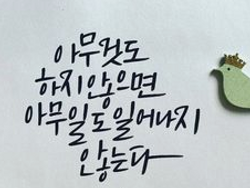 아무것도
하지않으면
아무일도일어나지
않는다